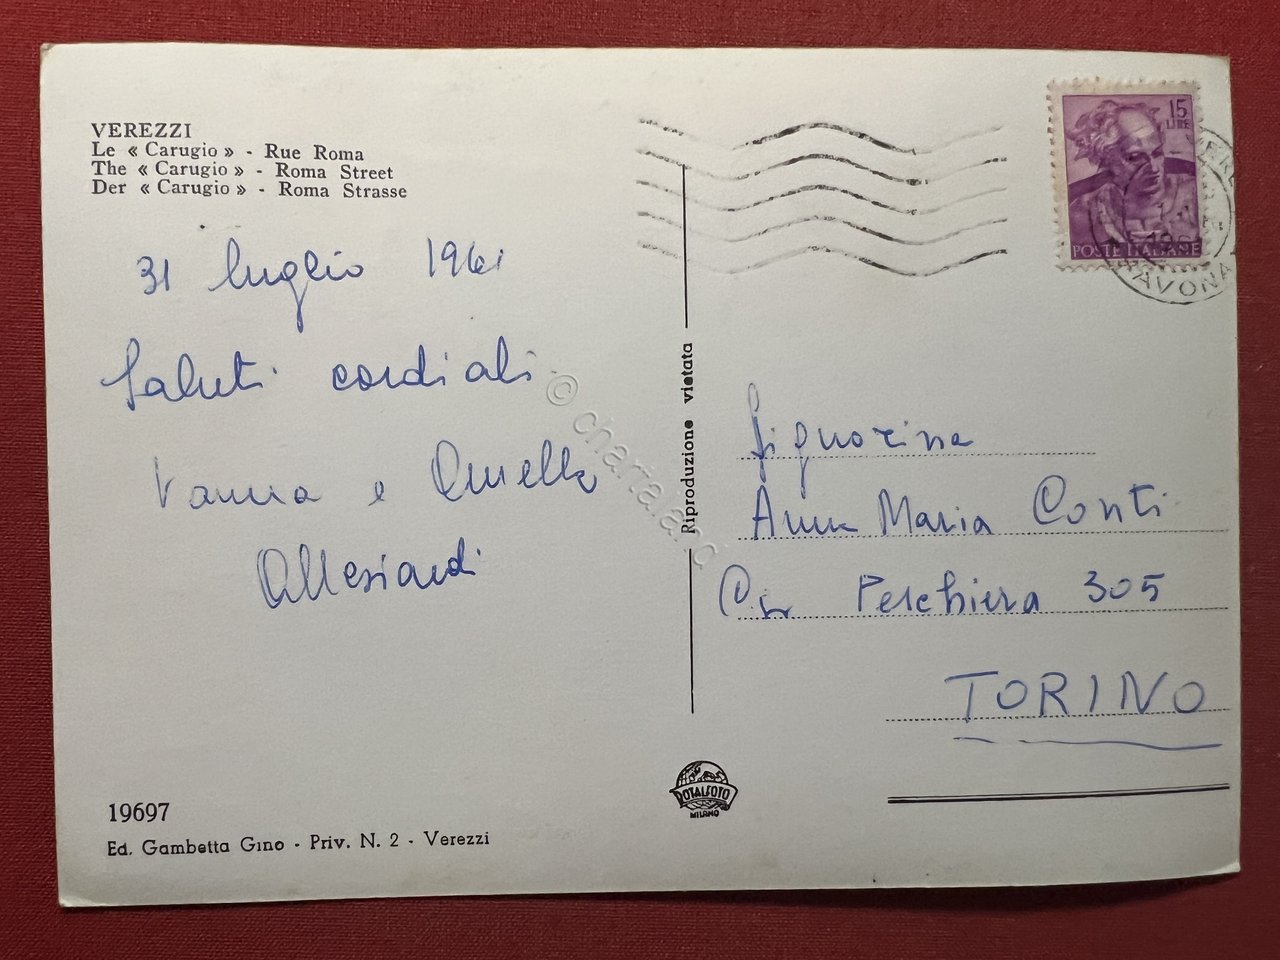 VEREZZI
Le « Carugio » - Rue Roma
The « Carugio » - Roma Street
Der « Carugio » - Roma Strasse
31 luglio 1961
Saluti cordiali
Vanna e Ornella
Allesiardi
19697
Ed. Gambetta Gino - Priv. N. 2 - Verezzi
Riproduzione vietata
ROTALFOTO
MILANO
15
LIRE
POSTE ITALIANE
SAVONA
Signorina
Anna Maria Conti
C.so Peschiera 305
TORINO
© charta.a